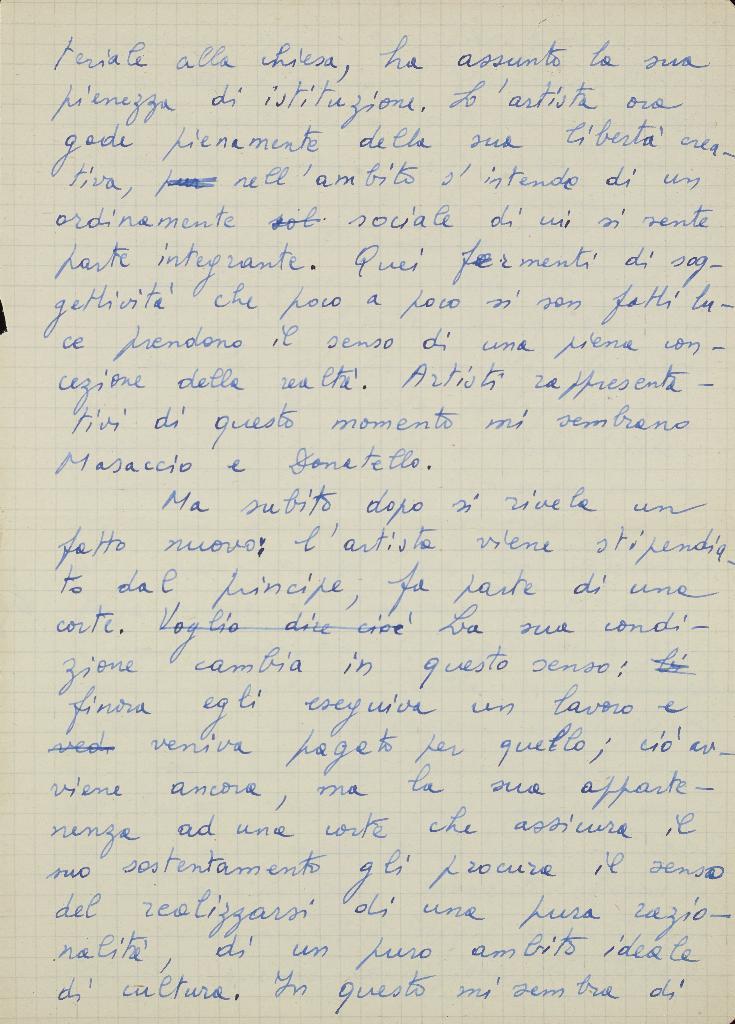 teriale alla chiesa, ha assunto la sua
pienezza di istituzione. L'artista ora
gode pienamente della sua libertà crea-
tiva, pur nell'ambito s'intende di un
ordinamento sol sociale di cui si sente
parte integrante. Quei fermenti di sog-
gettività che poco a poco si son fatti lu-
ce prendono il senso di una piena con-
cezione della realtà. Artisti rappresenta-
tivi di questo momento mi sembrano
Masaccio e Donatello.
Ma subito dopo si rivela un
fatto nuovo: l'artista viene stipendia-
to dal principe, fa parte di una
corte. Voglio dire cioè La sua condi-
zione cambia in questo senso:
finora egli eseguiva un lavoro e
ved veniva pagato per quello; ciò av-
viene ancora, ma la sua apparte-
nenza ad una corte che assicura il
suo sostentamento gli procura il senso
del realizzarsi di una pura razio-
nalità, di un puro ambito ideale
di cultura. In questo mi sembra di